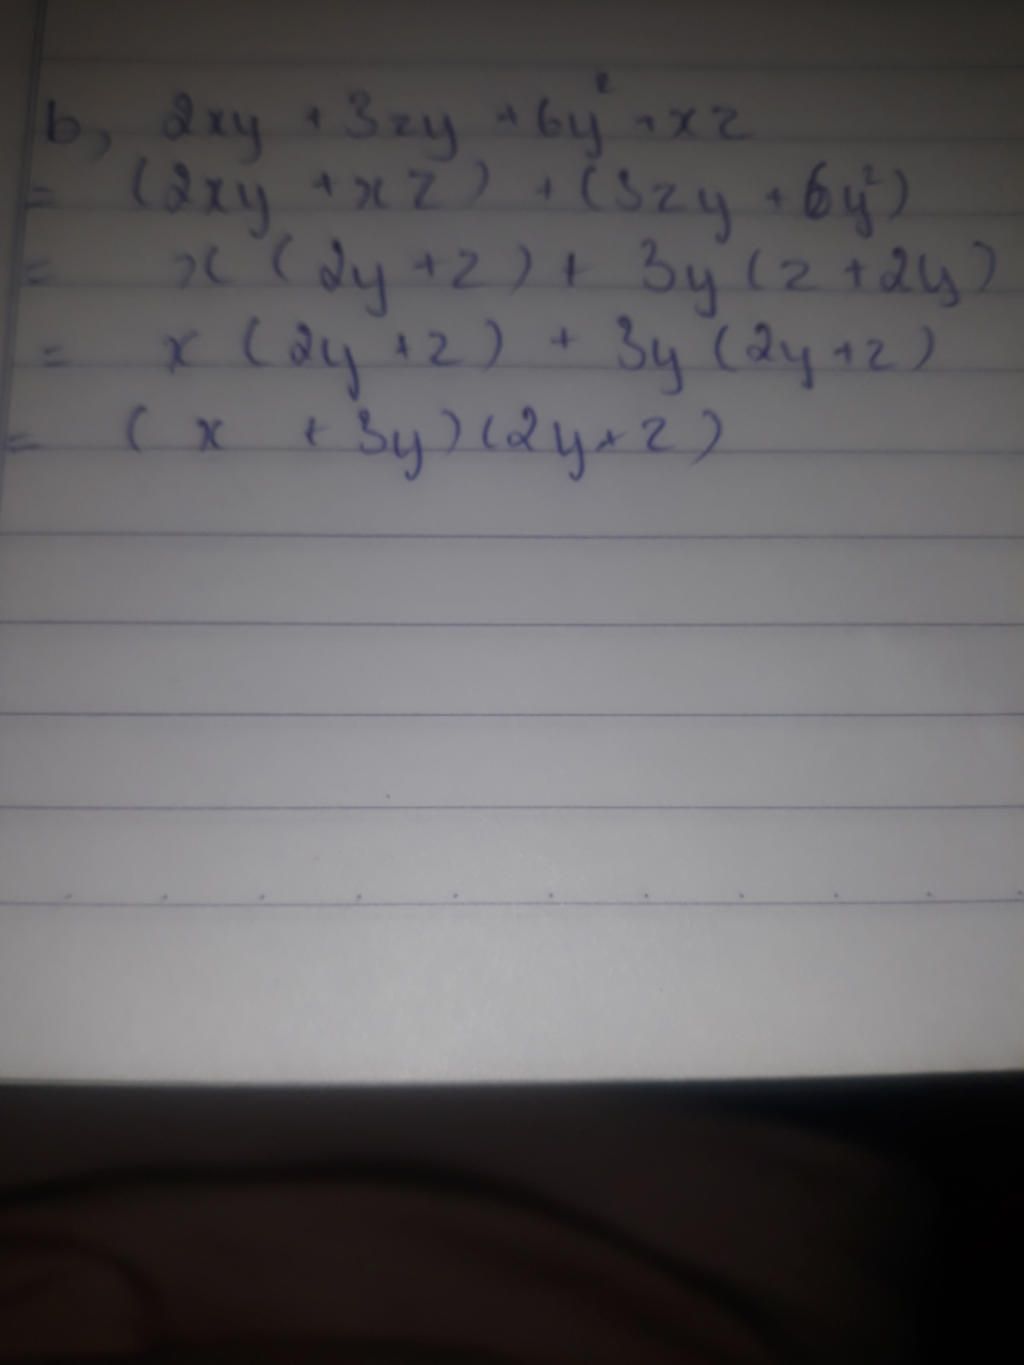 b, 2xy + 3zy + 6y² + xz
= (2xy + xz) + (3zy + 6y²)
= x (2y + z) + 3y (z + 2y)
= x (2y + z) + 3y (2y + z)
= (x + 3y)(2y + z)